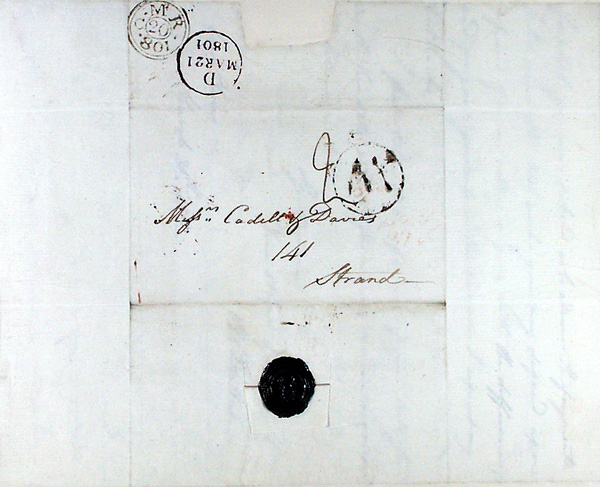 MR
20
801
D
MAR21
1801
2
Messrs Cadell & Davies
141
Strand